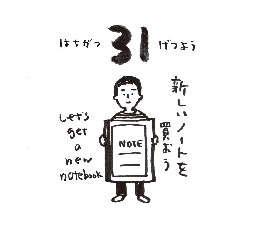 はちがつ 31 げつよう
新しいノートを
買おう
Let's
get
a
new
notebook
NOTE